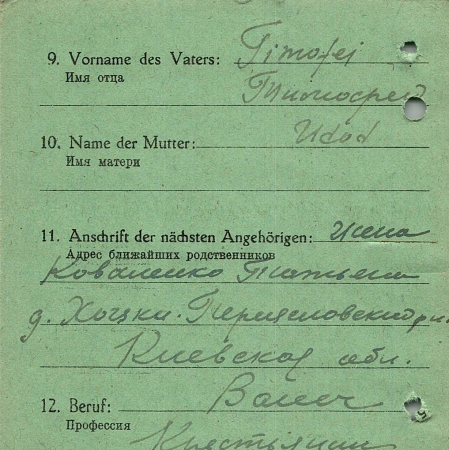 9. Vorname des Vaters: Timofej
Имя отца Тимофей
10. Name der Mutter: Udod
Имя матери
11. Anschrift der nächsten Angehörigen: жена
Адрес ближайших родственников
Коваленко Татьяна
д. Хоцки. Переясловский р-н.
Киевская обл.
12. Beruf: Bauer
Профессия Крестьянин